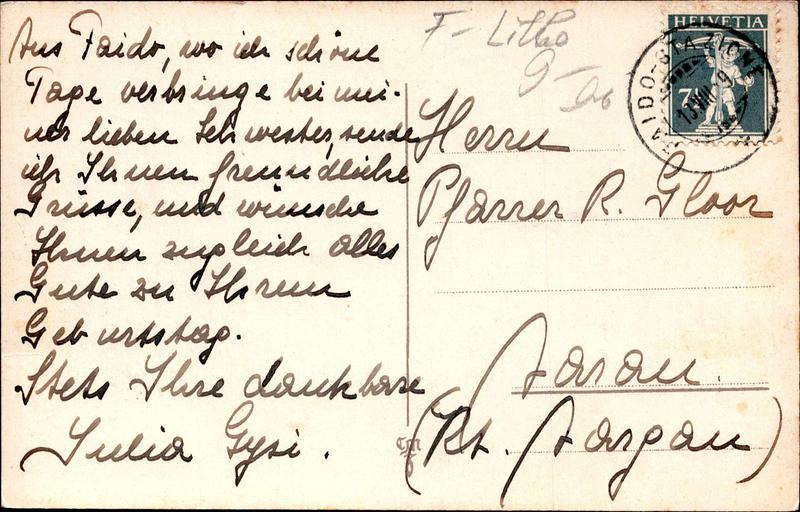 Aus Faido, wo ich schöne
Tage verbringe bei mei-
ner lieben Schwester, sende
ich Ihnen freundliche
Grüsse, und wünsche
Ihnen zugleich alles
Gute zu Ihrem
Geburtstag.
Stets Ihre dankbare
Julia Gysi.
F - Litho
9 -
HELVETIA
7½
FAIDO-STAZIONE
13.VIII.
Herrn
Pfarrer R. Gloor
Aarau.
(Kt. Aargau)